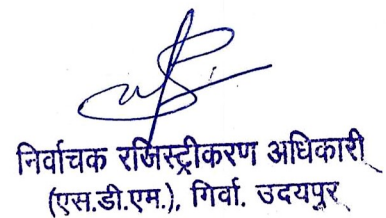 निर्वाचक रजिस्ट्रीकरण अधिकारी
(एस.डी.एम.), गिर्वा. उदयपुर